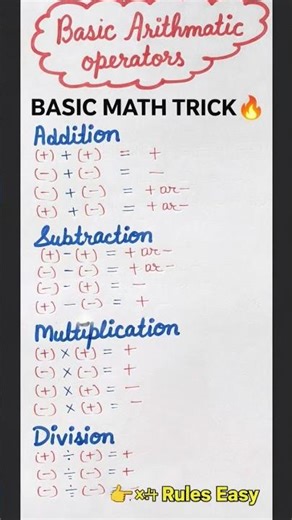 Basic Arithmatic
operators
BASIC MATH TRICK🔥
Addition
(+) + (+) = +
(-) + (-) = -
(-) + (-) = + or -
(+) + (+) = + or -
Subtraction
(+) - (+) = + or -
(-) - (-) = + or -
(-) - (+) = -
(+) - (-) = +
Multiplication
(+) × (+) = +
(-) × (-) = +
(+) × (-) = -
(-) × (+) = -
Division
(+) ÷ (+) = +
(-) ÷ (-) = +
(-) ÷ (-)
👉 ×÷ Rules Easy